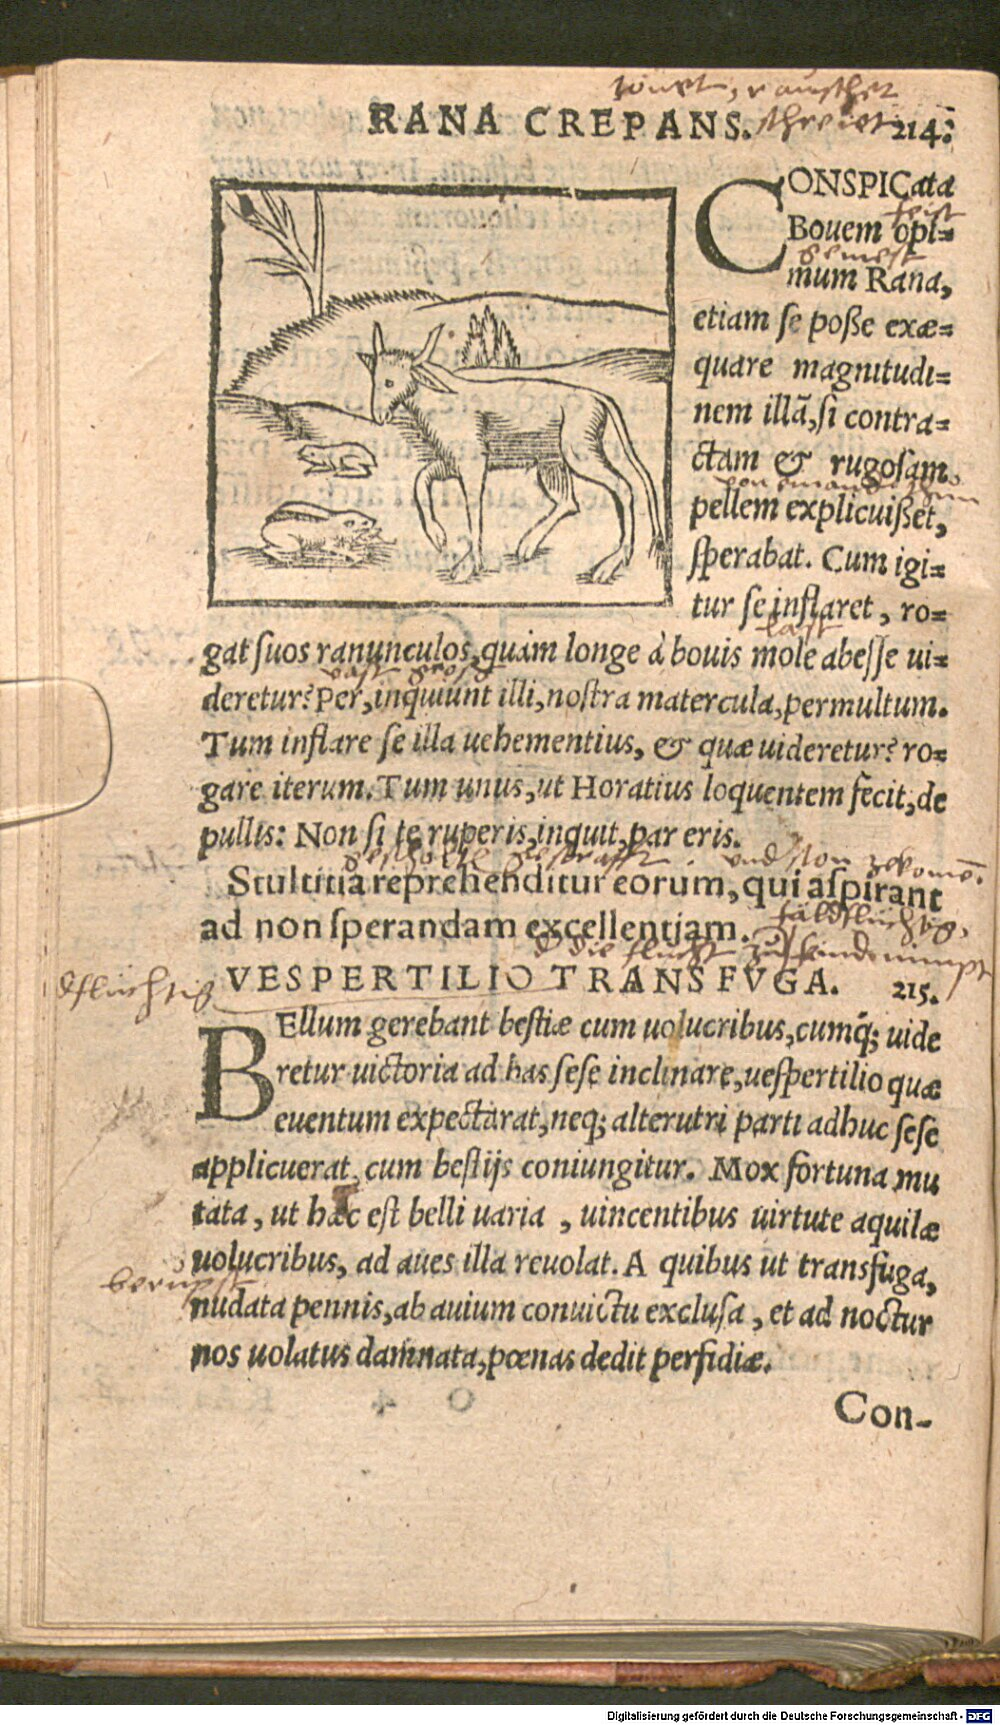 tönet, rauschet
RANA CREPANS. schreiet 214.
CONSPICata
feist
Bouem opi=
gemest
mum Rana,
etiam se poße exæ=
quare magnitudi=
nem illã, si contra=
ctam & rugosam
pellem explicuißet,
sperabat. Cum igi=
tur se inflaret, ro=
last
gat suos ranunculos, quàm longe à bouis mole abesse ui=
vast gross
deretur? Per, inquiunt illi, nostra matercula, permultum.
Tum inflare se illa uehementius, & quæ uideretur? ro=
gare iterum. Tum unus, ut Horatius loquentem fecit, de
pullis: Non si te ruperis, inquit, par eris.
gescholtẽ gestrafft und ston zekomẽ.
Stultitia reprehenditur eorum, qui aspirant
ad non sperandam excellentiam. fäldflüchtig,
d die flucht zů feinde nimpt
dflüchtig VESPERTILIO TRANSFVGA. 215.
BEllum gerebant bestiæ cum uolucribus, cumq́; uide
retur uictoria ad has sese inclinare, uespertilio quæ
euentum expectarat, neq; alterutri parti adhuc sese
applicuerat, cum bestijs coniungitur. Mox fortuna mu
tata, ut hæc est belli uaria, uincentibus uirtute aquilæ
uolucribus, ad aues illa reuolat. A quibus ut transfuga,
berupft
nudata pennis, ab auium conuictu exclusa, et ad noctur
nos uolatus damnata, pœnas dedit perfidiæ.
Con-
Digitalisierung gefördert durch die Deutsche Forschungsgemeinschaft - DFG